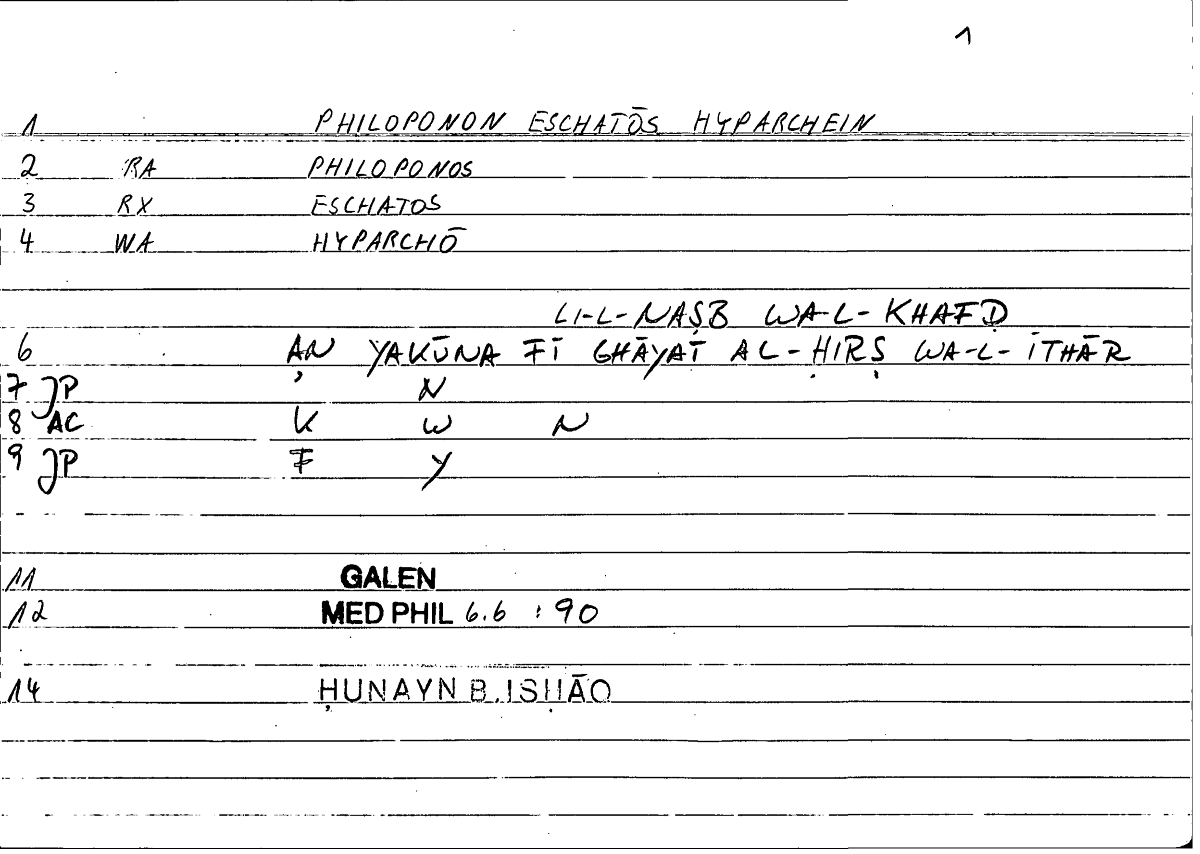 1
1 PHILOPONON ESCHATŌS HYPARCHEIN
2 RA PHILOPONOS
3 RX ESCHATOS
4 WA HYPARCHŌ
LI-L-NAṢB WA-L-KHAFḌ
6 AN YAKŪNA FĪ GHĀYAT AL-ḤIRṢ WA-L-ĪTHĀR
7 JP ʾ N
8 AC K W N
9 JP F Y
11 GALEN
12 MED PHIL 6.6 : 90
14 ḤUNAYN B. ISḤĀQ